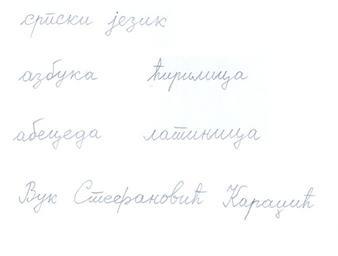 српски језик
азбука ћирилица
абецеда латиница
Вук Стефановић Караџић